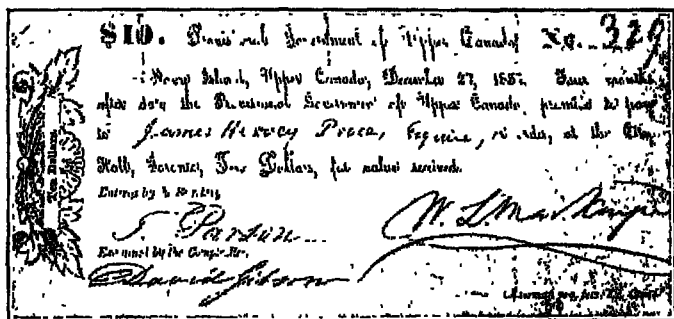 $10. Provisional Government of Upper Canada No. 329
Navy Island, Upper Canada, December 27, 1837. Four months
after date the Provisional Government of Upper Canada, promise to pay
to James Hervey Price, Esquire, or order, at the City
Hall, Toronto, Ten Dollars, for value received.
Entered by the
T. Parson
Examined by the Comptroller,
David Gibson
W. L. Mackenzie
Ten Dollars